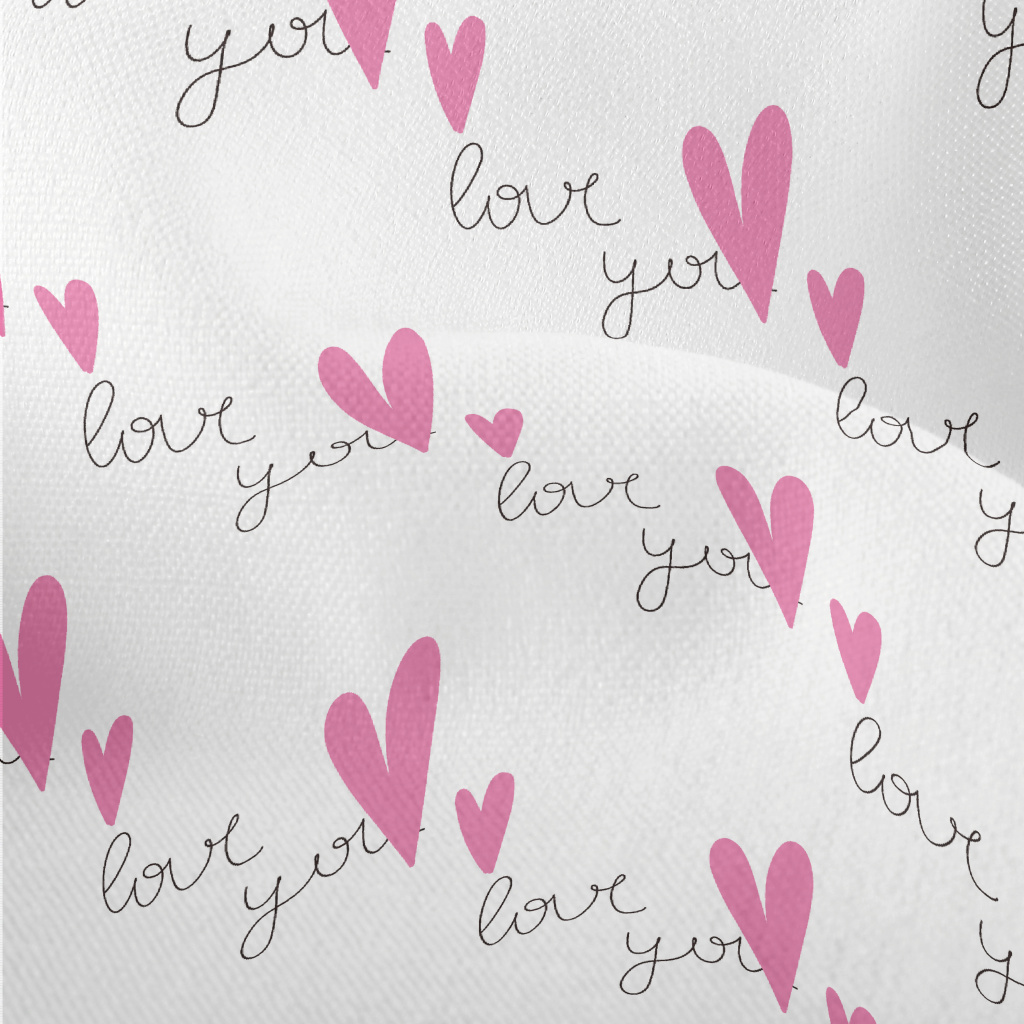 you
love
you
love
love
you
love
you
love
love
you
love
you